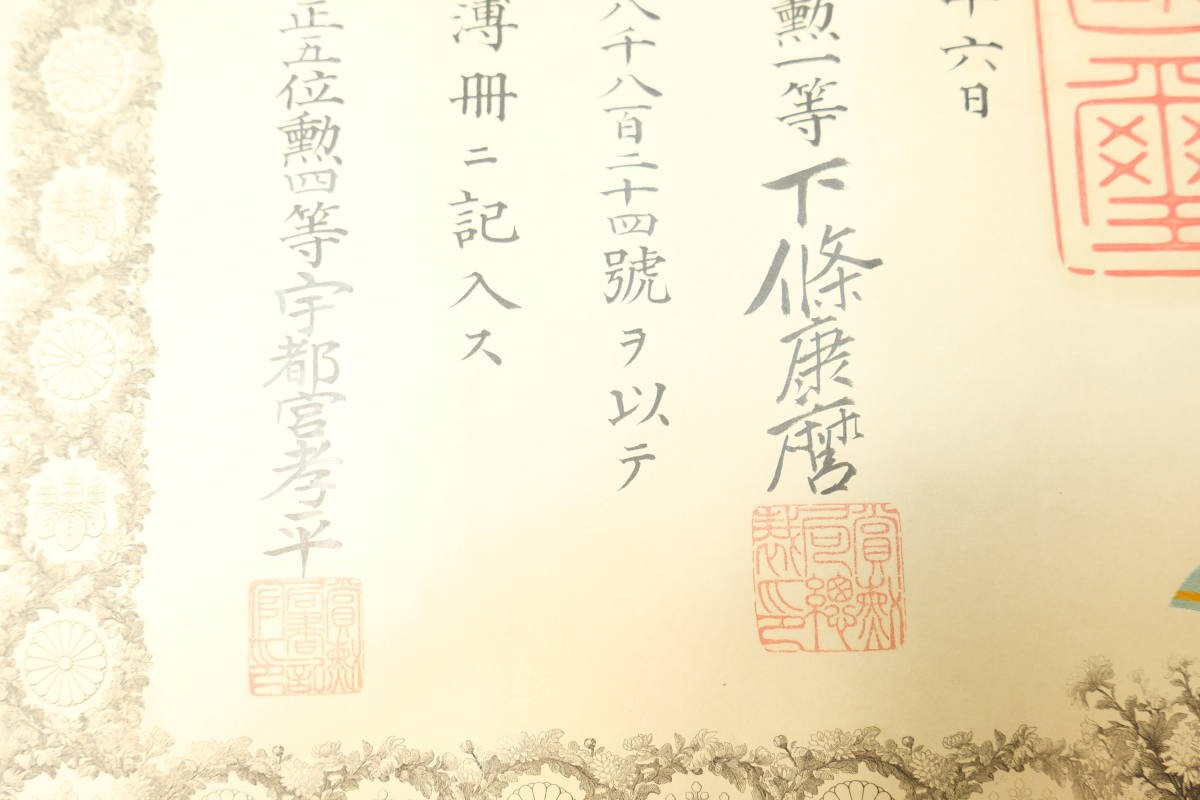 六日
勲一等下條康麿
賞勲局總裁之印
八千八百二十四號ヲ以テ
簿冊ニ記入ス
正五位勲四等宇都宮孝平
賞勲局書記官之印